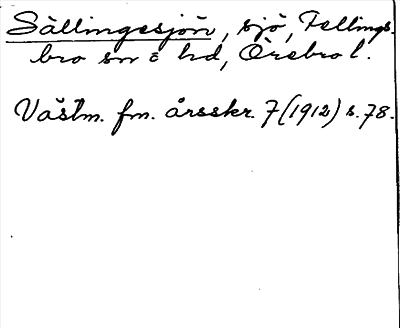 Sällingesjön, sjö, Fellings-
bro sn o hd, Örebro l.
Västm. fm. årsskr. 7 (1912) s. 78.